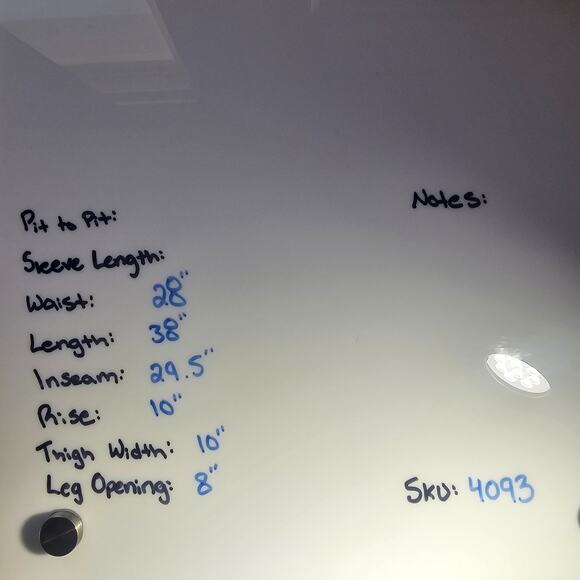 Notes:
Pit to Pit:
Sleeve Length:
Waist: 28"
Length: 38"
Inseam: 29.5"
Rise: 10"
Thigh Width: 10"
Leg Opening: 8"
SKU: 4093